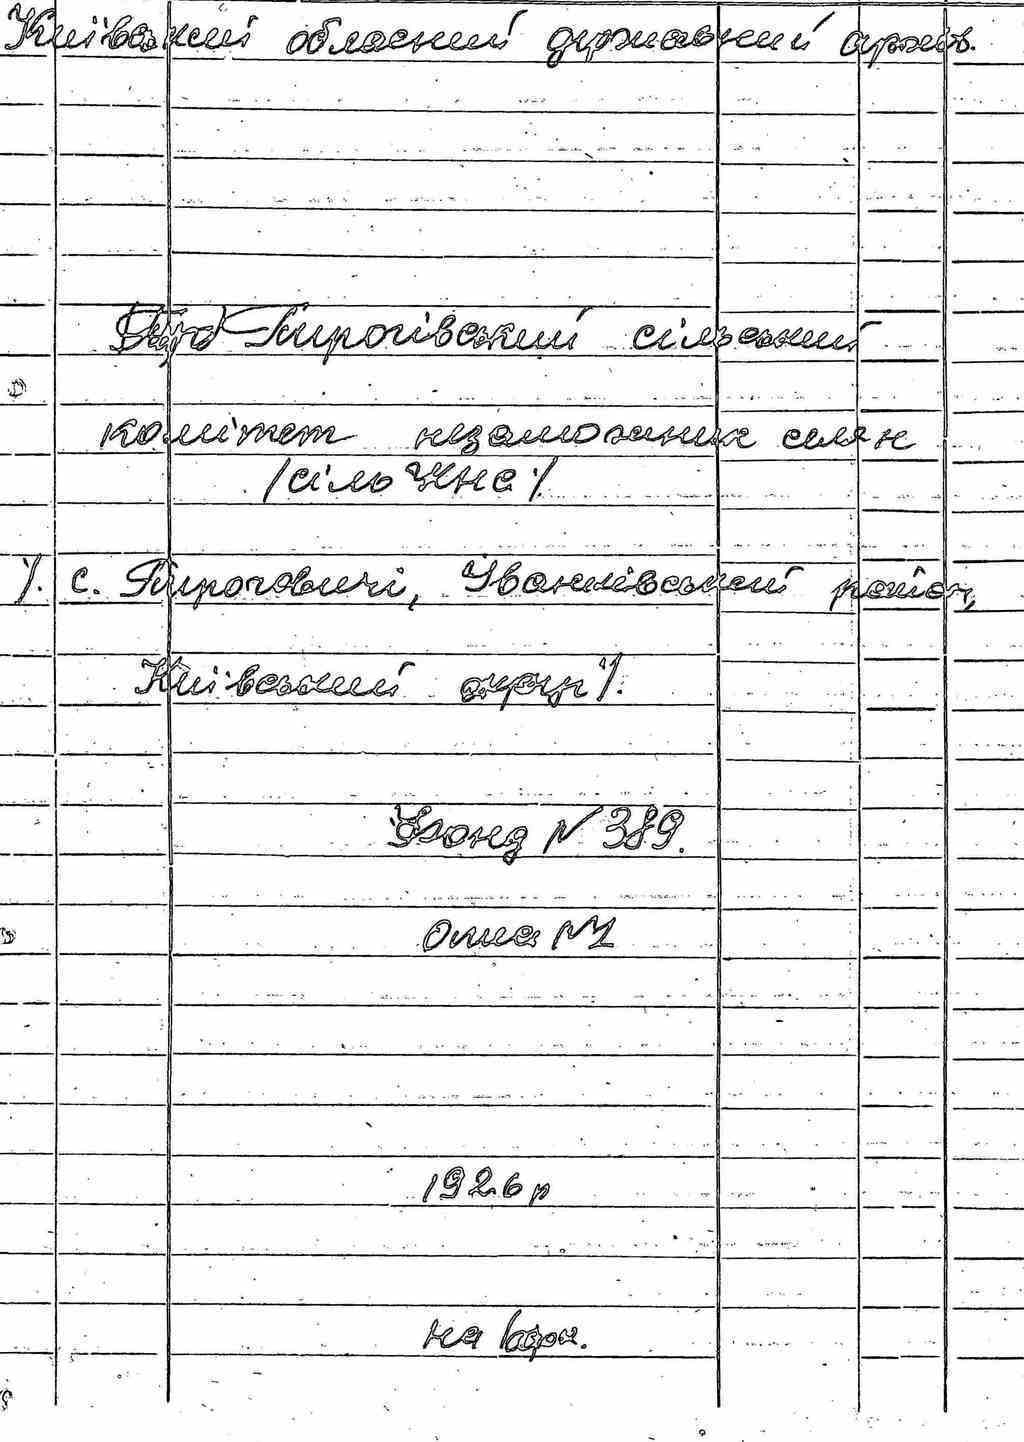 Київський обласний державний архів.
Пирогівський сільський
комітет незаможних селян
/сіль КНС/
/. с. Пироговичі, Іванківський район,
Київський округ/.
Фонд № 389.
Опис №1
1926 р
на арк.